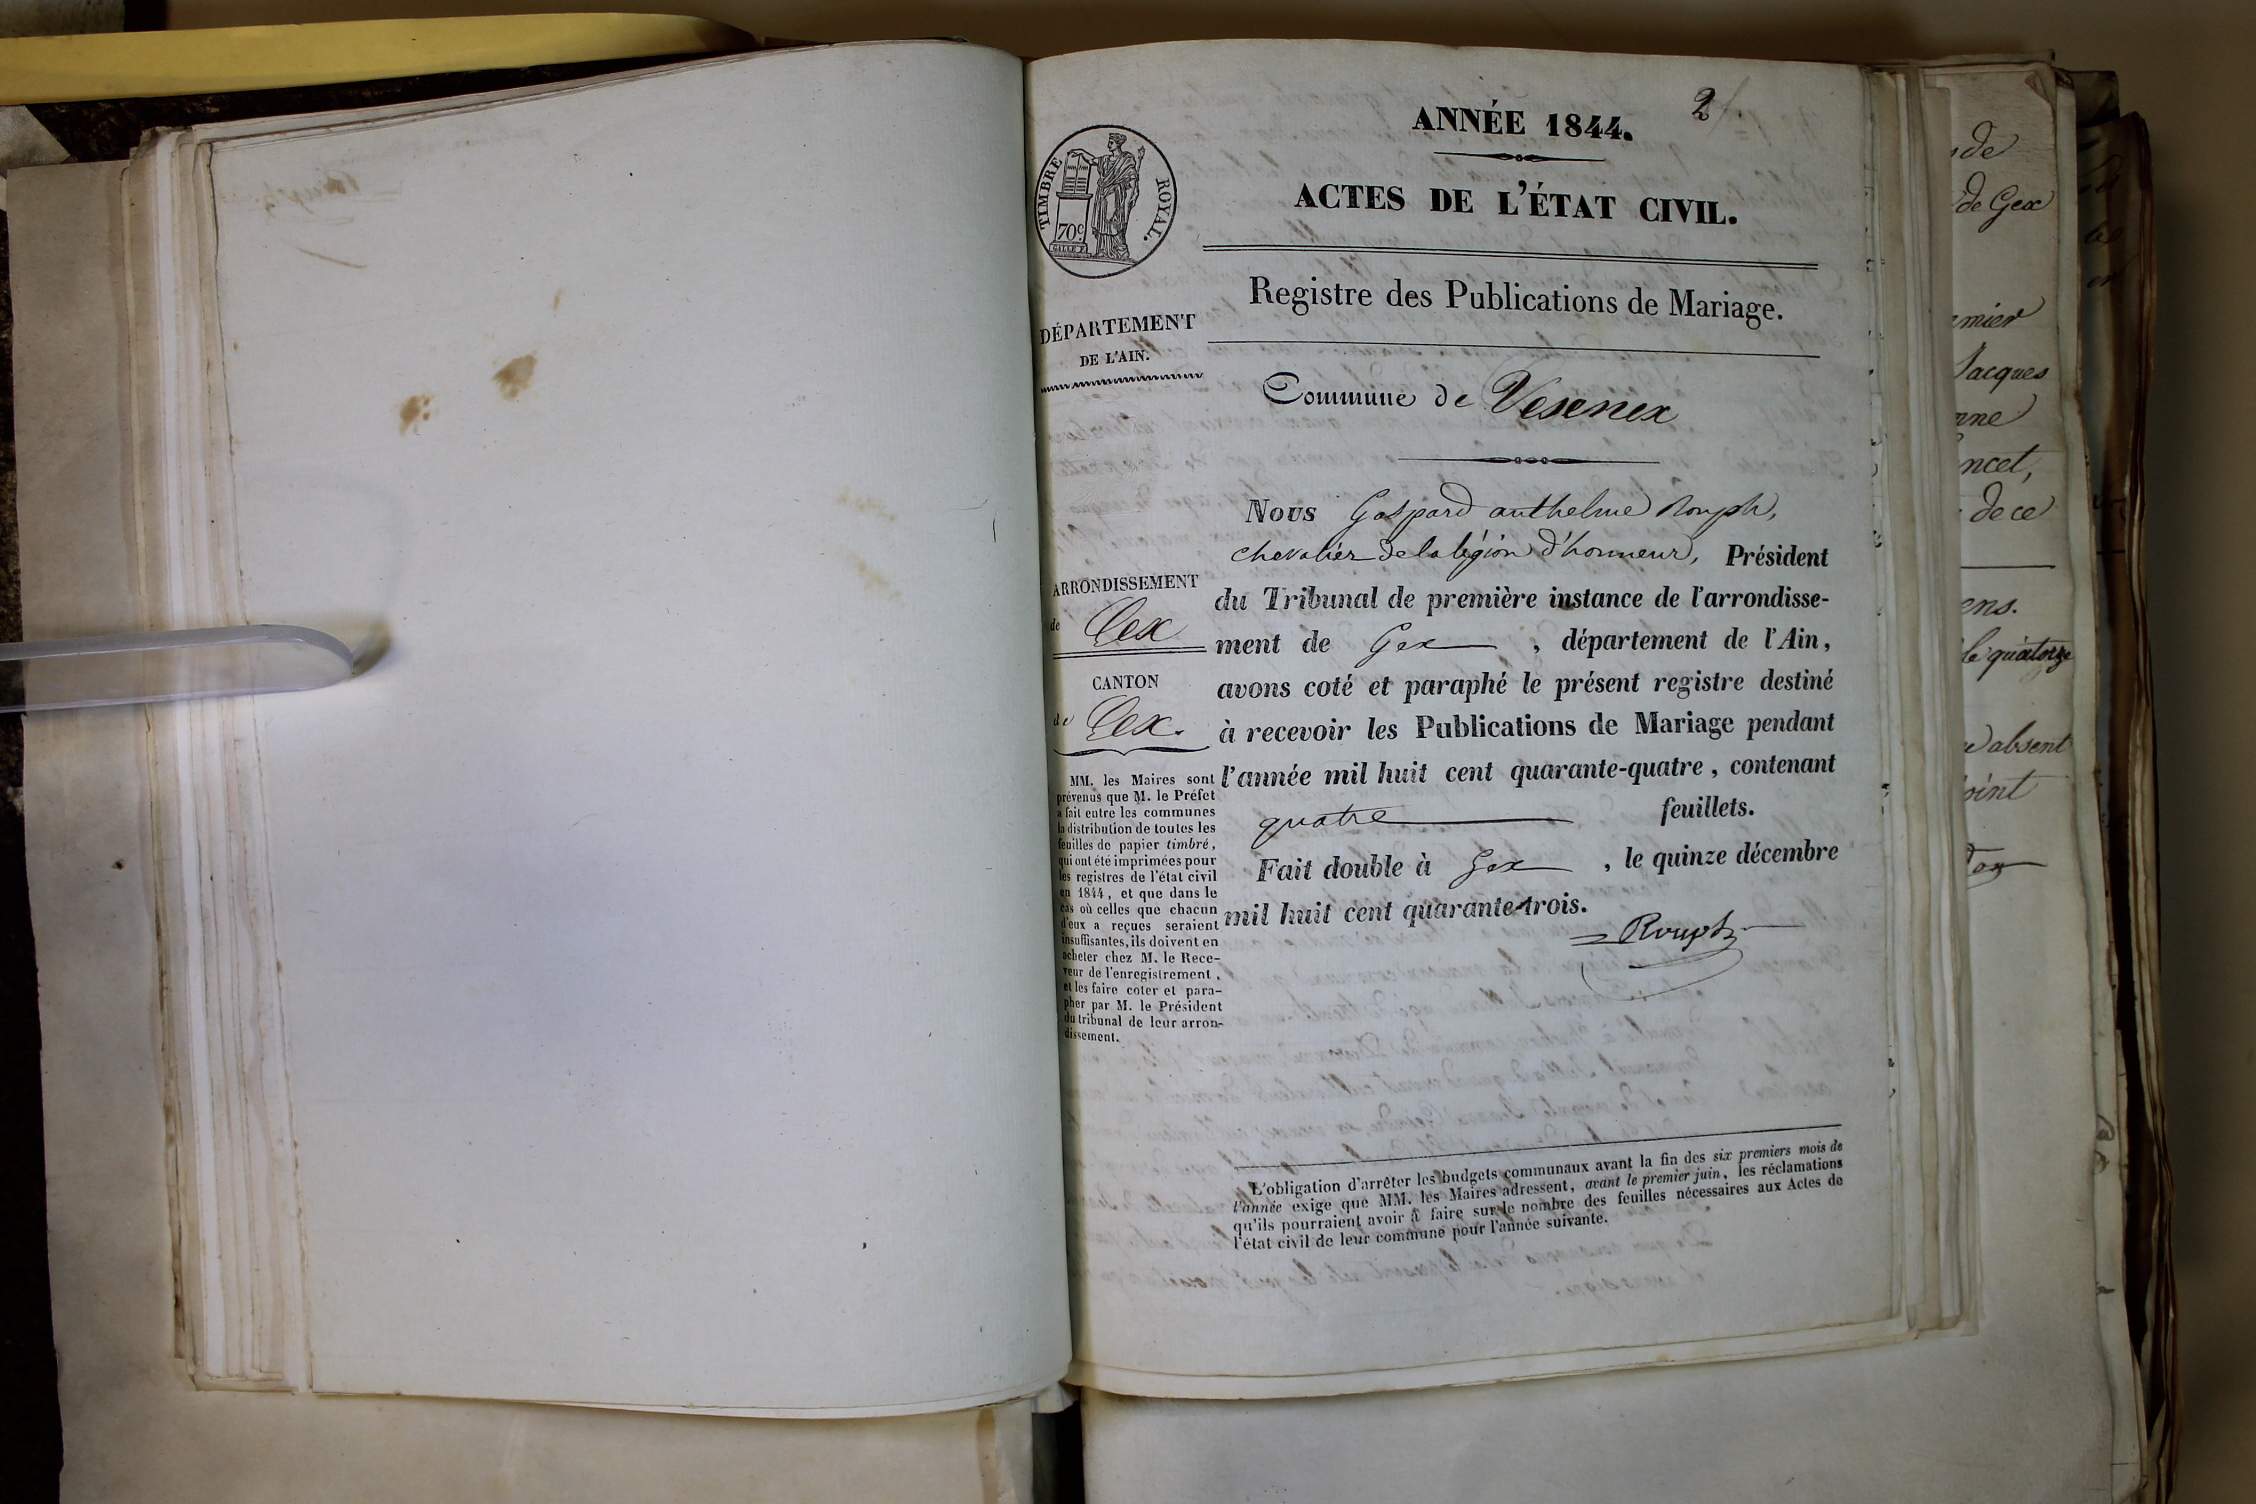 ANNÉE 1844.
2
ACTES DE L'ÉTAT CIVIL.
TIMBRE ROYAL.
70c.
Registre des Publications de Mariage.
DÉPARTEMENT
DE L'AIN.
Commune de Vesenex
ARRONDISSEMENT
de Gex
CANTON
de Gex.
MM. les Maires sont
prévenus que M. le Préfet
a fait entre les communes
la distribution de toutes les
feuilles de papier timbré,
qui ont été imprimées pour
les registres de l'état civil
en 1844, et que dans le
cas où celles que chacun
d'eux a reçues seraient
insuffisantes, ils doivent en
acheter chez M. le Rece-
veur de l'enregistrement,
et les faire coter et para-
pher par M. le Président
du tribunal de leur arron-
dissement.
Nous Gaspard anthelme Rouph,
chevalier de la légion d'honneur, Président
du Tribunal de première instance de l'arrondisse-
ment de Gex, département de l'Ain,
avons coté et paraphé le présent registre destiné
à recevoir les Publications de Mariage pendant
l'année mil huit cent quarante-quatre, contenant
quatre feuillets.
Fait double à Gex, le quinze décembre
mil huit cent quarante-trois.
Rouph
L'obligation d'arrêter les budgets communaux avant la fin des six premiers mois de
l'année exige que MM. les Maires adressent, avant le premier juin, les réclamations
qu'ils pourraient avoir à faire sur le nombre des feuilles nécessaires aux Actes de
l'état civil de leur commune pour l'année suivante.
de
de Gex
mier
Jacques
nne
ncet,
de ce
ens.
le quatorze
absent
oint